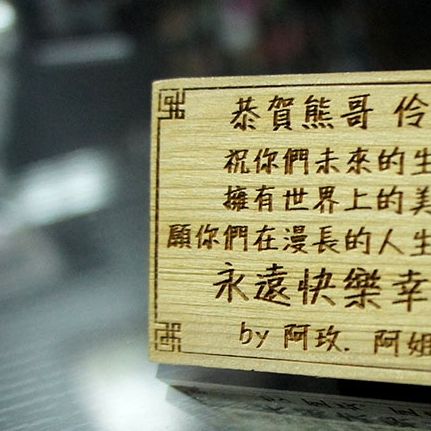 恭賀熊哥 伶
祝你們未來的生
擁有世界上的美
願你們在漫長的人生
永遠快樂幸
by 阿玫. 阿姐